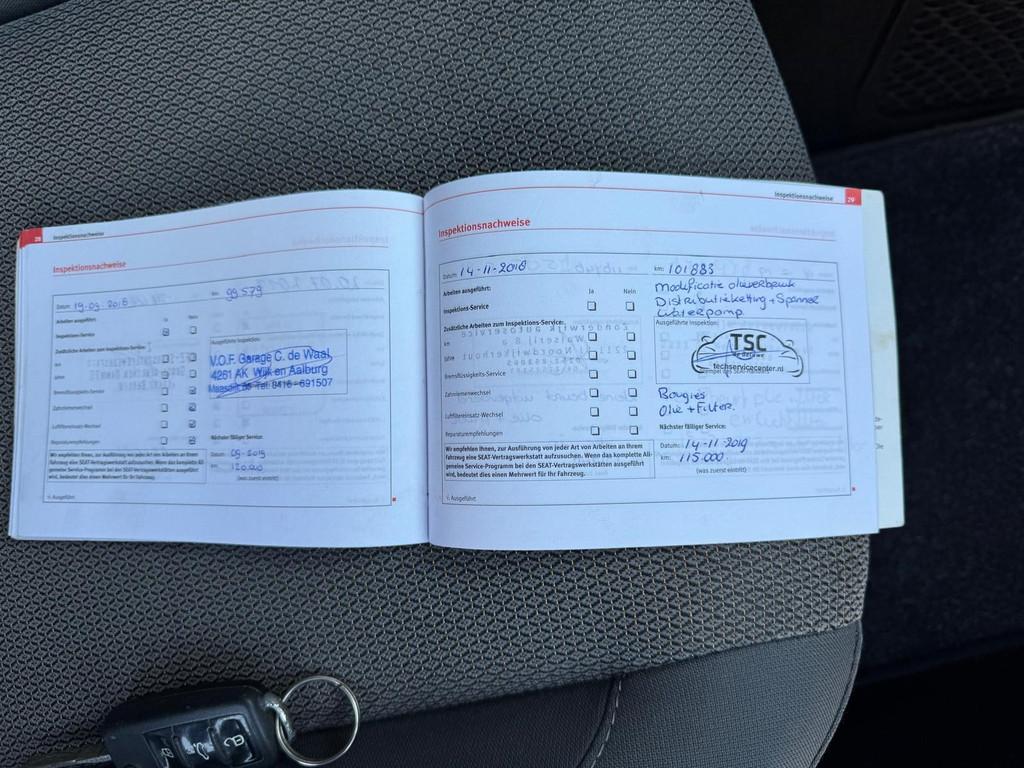 28 Inspektionsnachweise
Inspektionsnachweise
Datum: 19-09-2018 km: 99.579
Arbeiten ausgeführt: Ja Nein
Inspektions-Service
Zusätzliche Arbeiten zum Inspektions-Service:
km
Jahre
Bremsflüssigkeits-Service
Zahnriemenwechsel
Luftfiltereinsatz-Wechsel
Reparaturempfehlungen
Ausgeführte Inspektion:
V.O.F. Garage C. de Waal
4261 AK Wijk en Aalburg
Tel. 0416 - 691507
Nächster fälliger Service:
Datum: 09-2019
km: 120.000
Wir empfehlen Ihnen, zur Ausführung von jeder Art von Arbeiten an Ihrem
Fahrzeug eine SEAT-Vertragswerkstatt aufzusuchen. Wenn das komplette All-
gemeine Service-Programm bei den SEAT-Vertragswerkstätten ausgeführt
wird, bedeutet dies einen Mehrwert für Ihr Fahrzeug.
Ausgeführt
Inspektionsnachweise 29
Inspektionsnachweise
Datum: 14-11-2018 km: 101883
Arbeiten ausgeführt: Ja Nein
Inspektions-Service
Zusätzliche Arbeiten zum Inspektions-Service:
km
Jahre
Bremsflüssigkeits-Service
Zahnriemenwechsel
Luftfiltereinsatz-Wechsel
Reparaturempfehlungen
modificatie olieverbruik
Distributieketting + Spanner
Waterpomp.
Ausgeführte Inspektion:
TSC
techservicecenter.nl
Bougies
Olie + Filter.
Nächster fälliger Service:
Datum: 14-11-2019
km: 115.000
(was zuerst eintritt)
Wir empfehlen Ihnen, zur Ausführung von jeder Art von Arbeiten an Ihrem
Fahrzeug eine SEAT-Vertragswerkstatt aufzusuchen. Wenn das komplette All-
gemeine Service-Programm bei den SEAT-Vertragswerkstätten ausgeführt
wird, bedeutet dies einen Mehrwert für Ihr Fahrzeug.
Ausgeführt